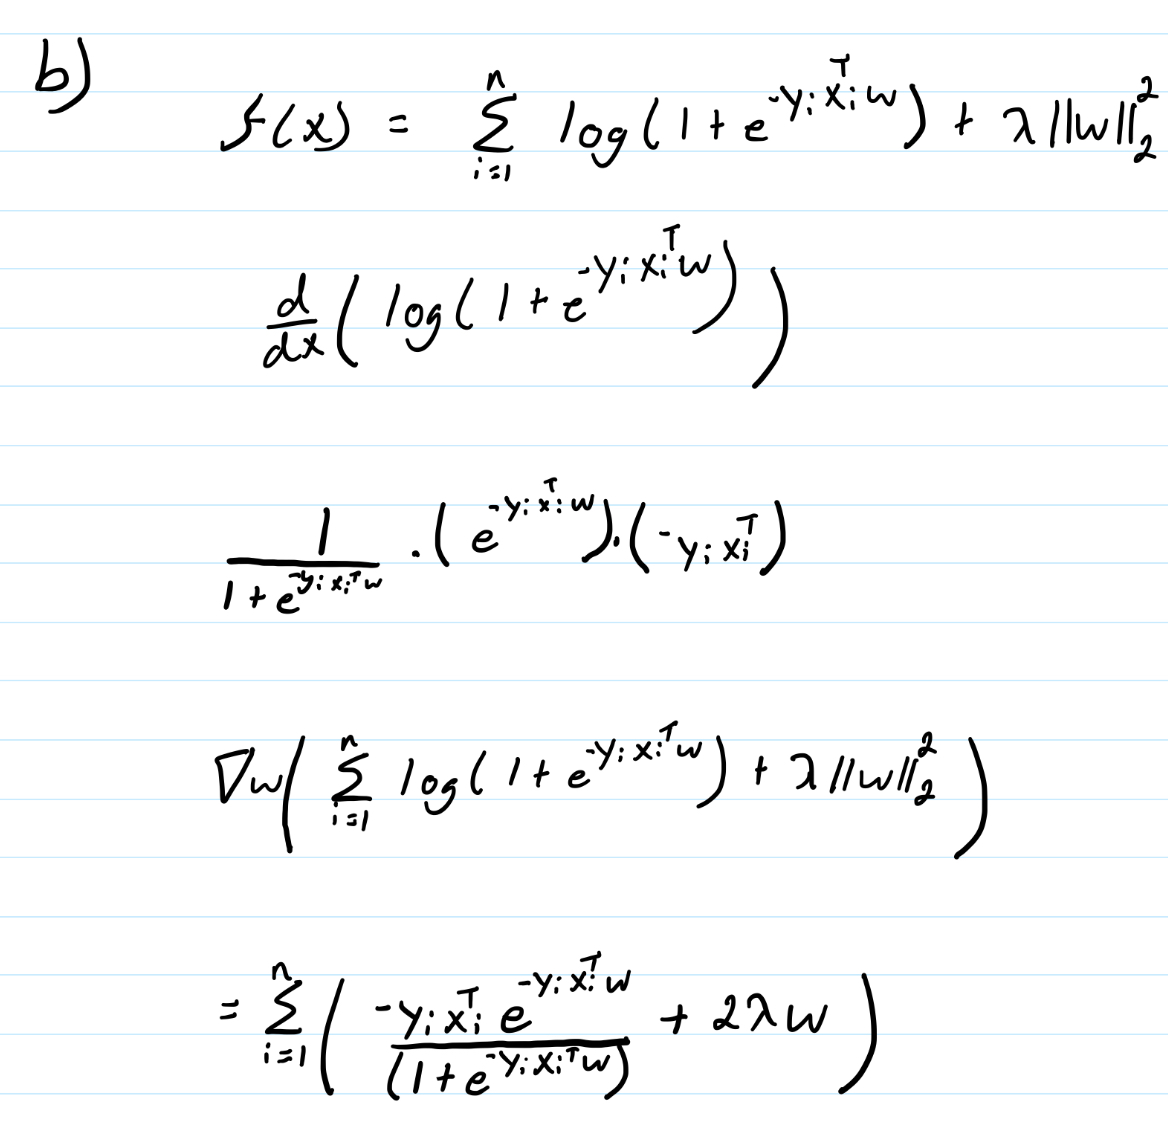 b)
f(x) = \sum_{i=1}^{n} log(1 + e^{-y_i x_i^T w}) + λ||w||_2^2
\frac{d}{dx}( log(1 + e^{-y_i x_i^T w}) )
\frac{1}{1 + e^{-y_i x_i^T w}} · (e^{-y_i x_i^T w}) · (-y_i x_i^T)
∇w( \sum_{i=1}^{n} log(1 + e^{-y_i x_i^T w}) + λ||w||_2^2 )
= \sum_{i=1}^{n} ( \frac{-y_i x_i^T e^{-y_i x_i^T w}}{(1 + e^{-y_i x_i^T w})} + 2λw )